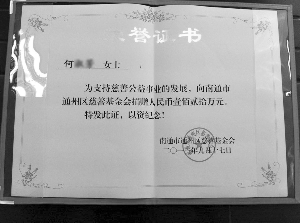 誉证书
何 女士
为支持慈善公益事业的发展，向南通市
通州区慈善基金会捐赠人民币壹佰贰拾万元。
特发此证，以资纪念！
南通市通州区慈善基金会